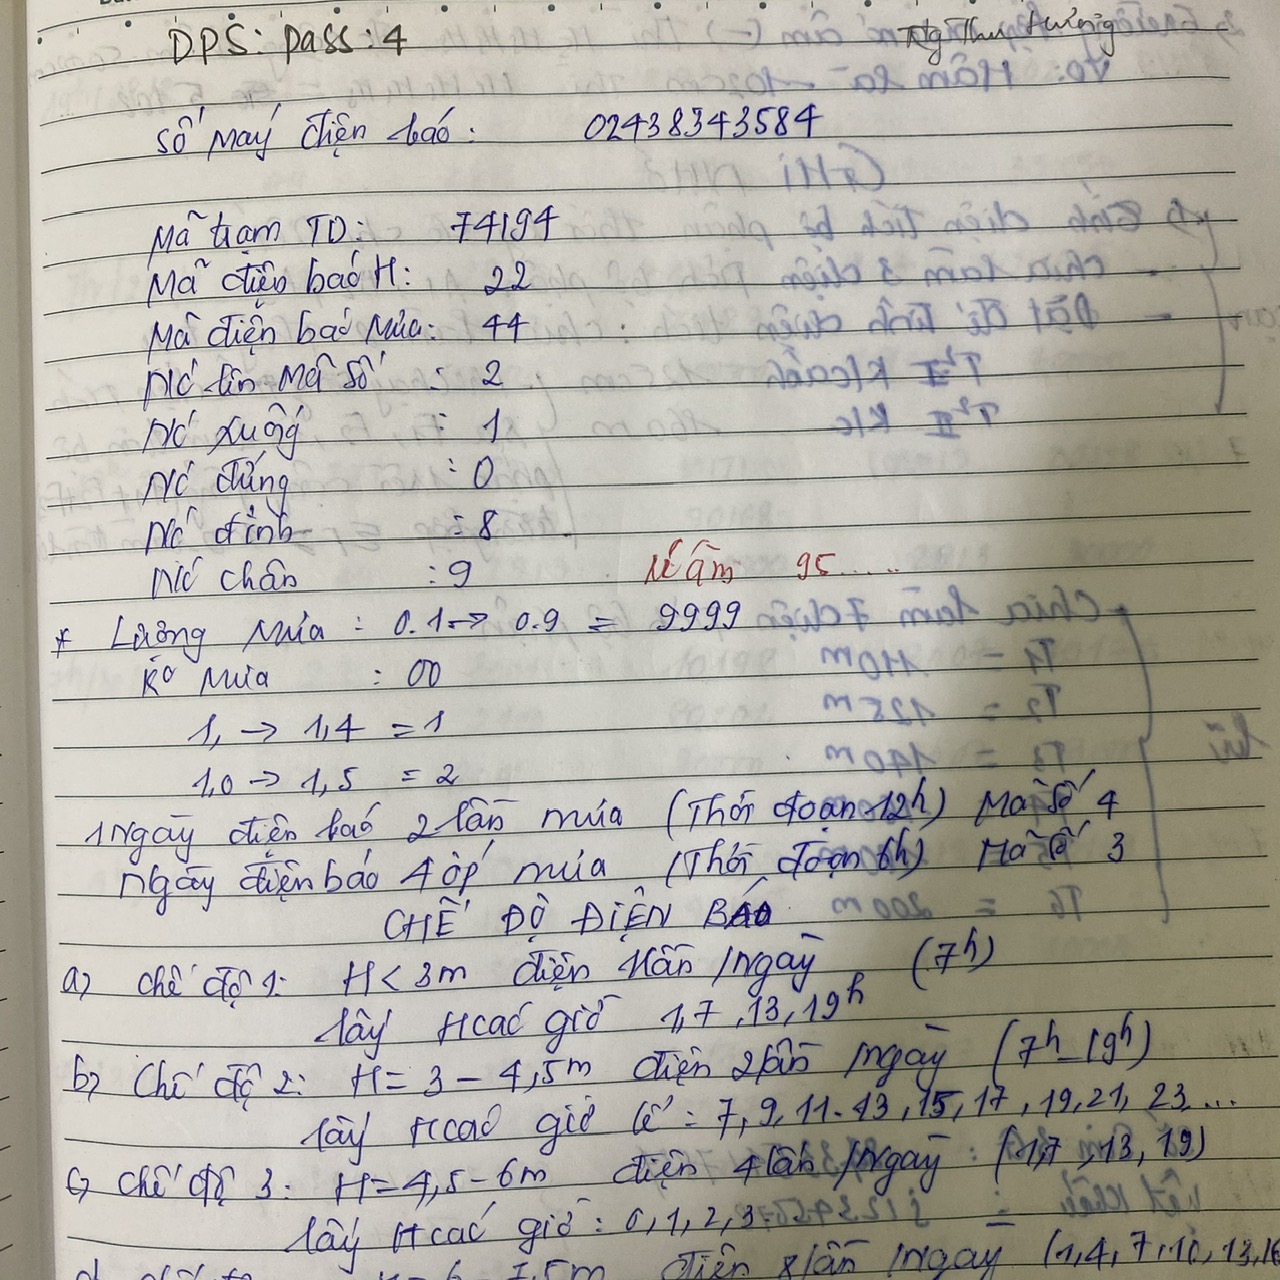 DPS: pass: 4
Ng Thu Hương
Số máy điện báo: 02438343584
Mã trạm TD: 74194
Mã điện báo H: 22
Mã điện báo Mưa: 44
Nc lên Mã số : 2
Nc xuống : 1
Nc đứng : 0
Nc đỉnh : 8
Nc chân : 9
95.....
* Lượng Mưa : 0.1 → 0.9 = 9999
Ko Mưa : 00
1, → 1,4 = 1
1,0 → 1,5 = 2
1 Ngày điện báo 2 lần mưa (Thời đoạn 12h) Mã số 4
Ngày điện báo 4 ốp mưa (Thời đoạn 6h) Mã số 3
CHẾ ĐỘ ĐIỆN BÁO
a) Chế độ 1: H < 3m điện 1 lần /ngày (7h)
lấy H các giờ 1,7,13,19h
b) Chế độ 2: H = 3 - 4,5m điện 2 lần /ngày (7h - 19h)
lấy H các giờ lẻ : 7, 9, 11. 13, 15, 17, 19, 21, 23...
c) Chế độ 3: H = 4,5 - 6m điện 4 lần /ngày : (1,7, 13, 19)
lấy H các giờ : 0, 1, 2, 3
điện 8 lần /ngày (1,4, 7, 10, 13,16